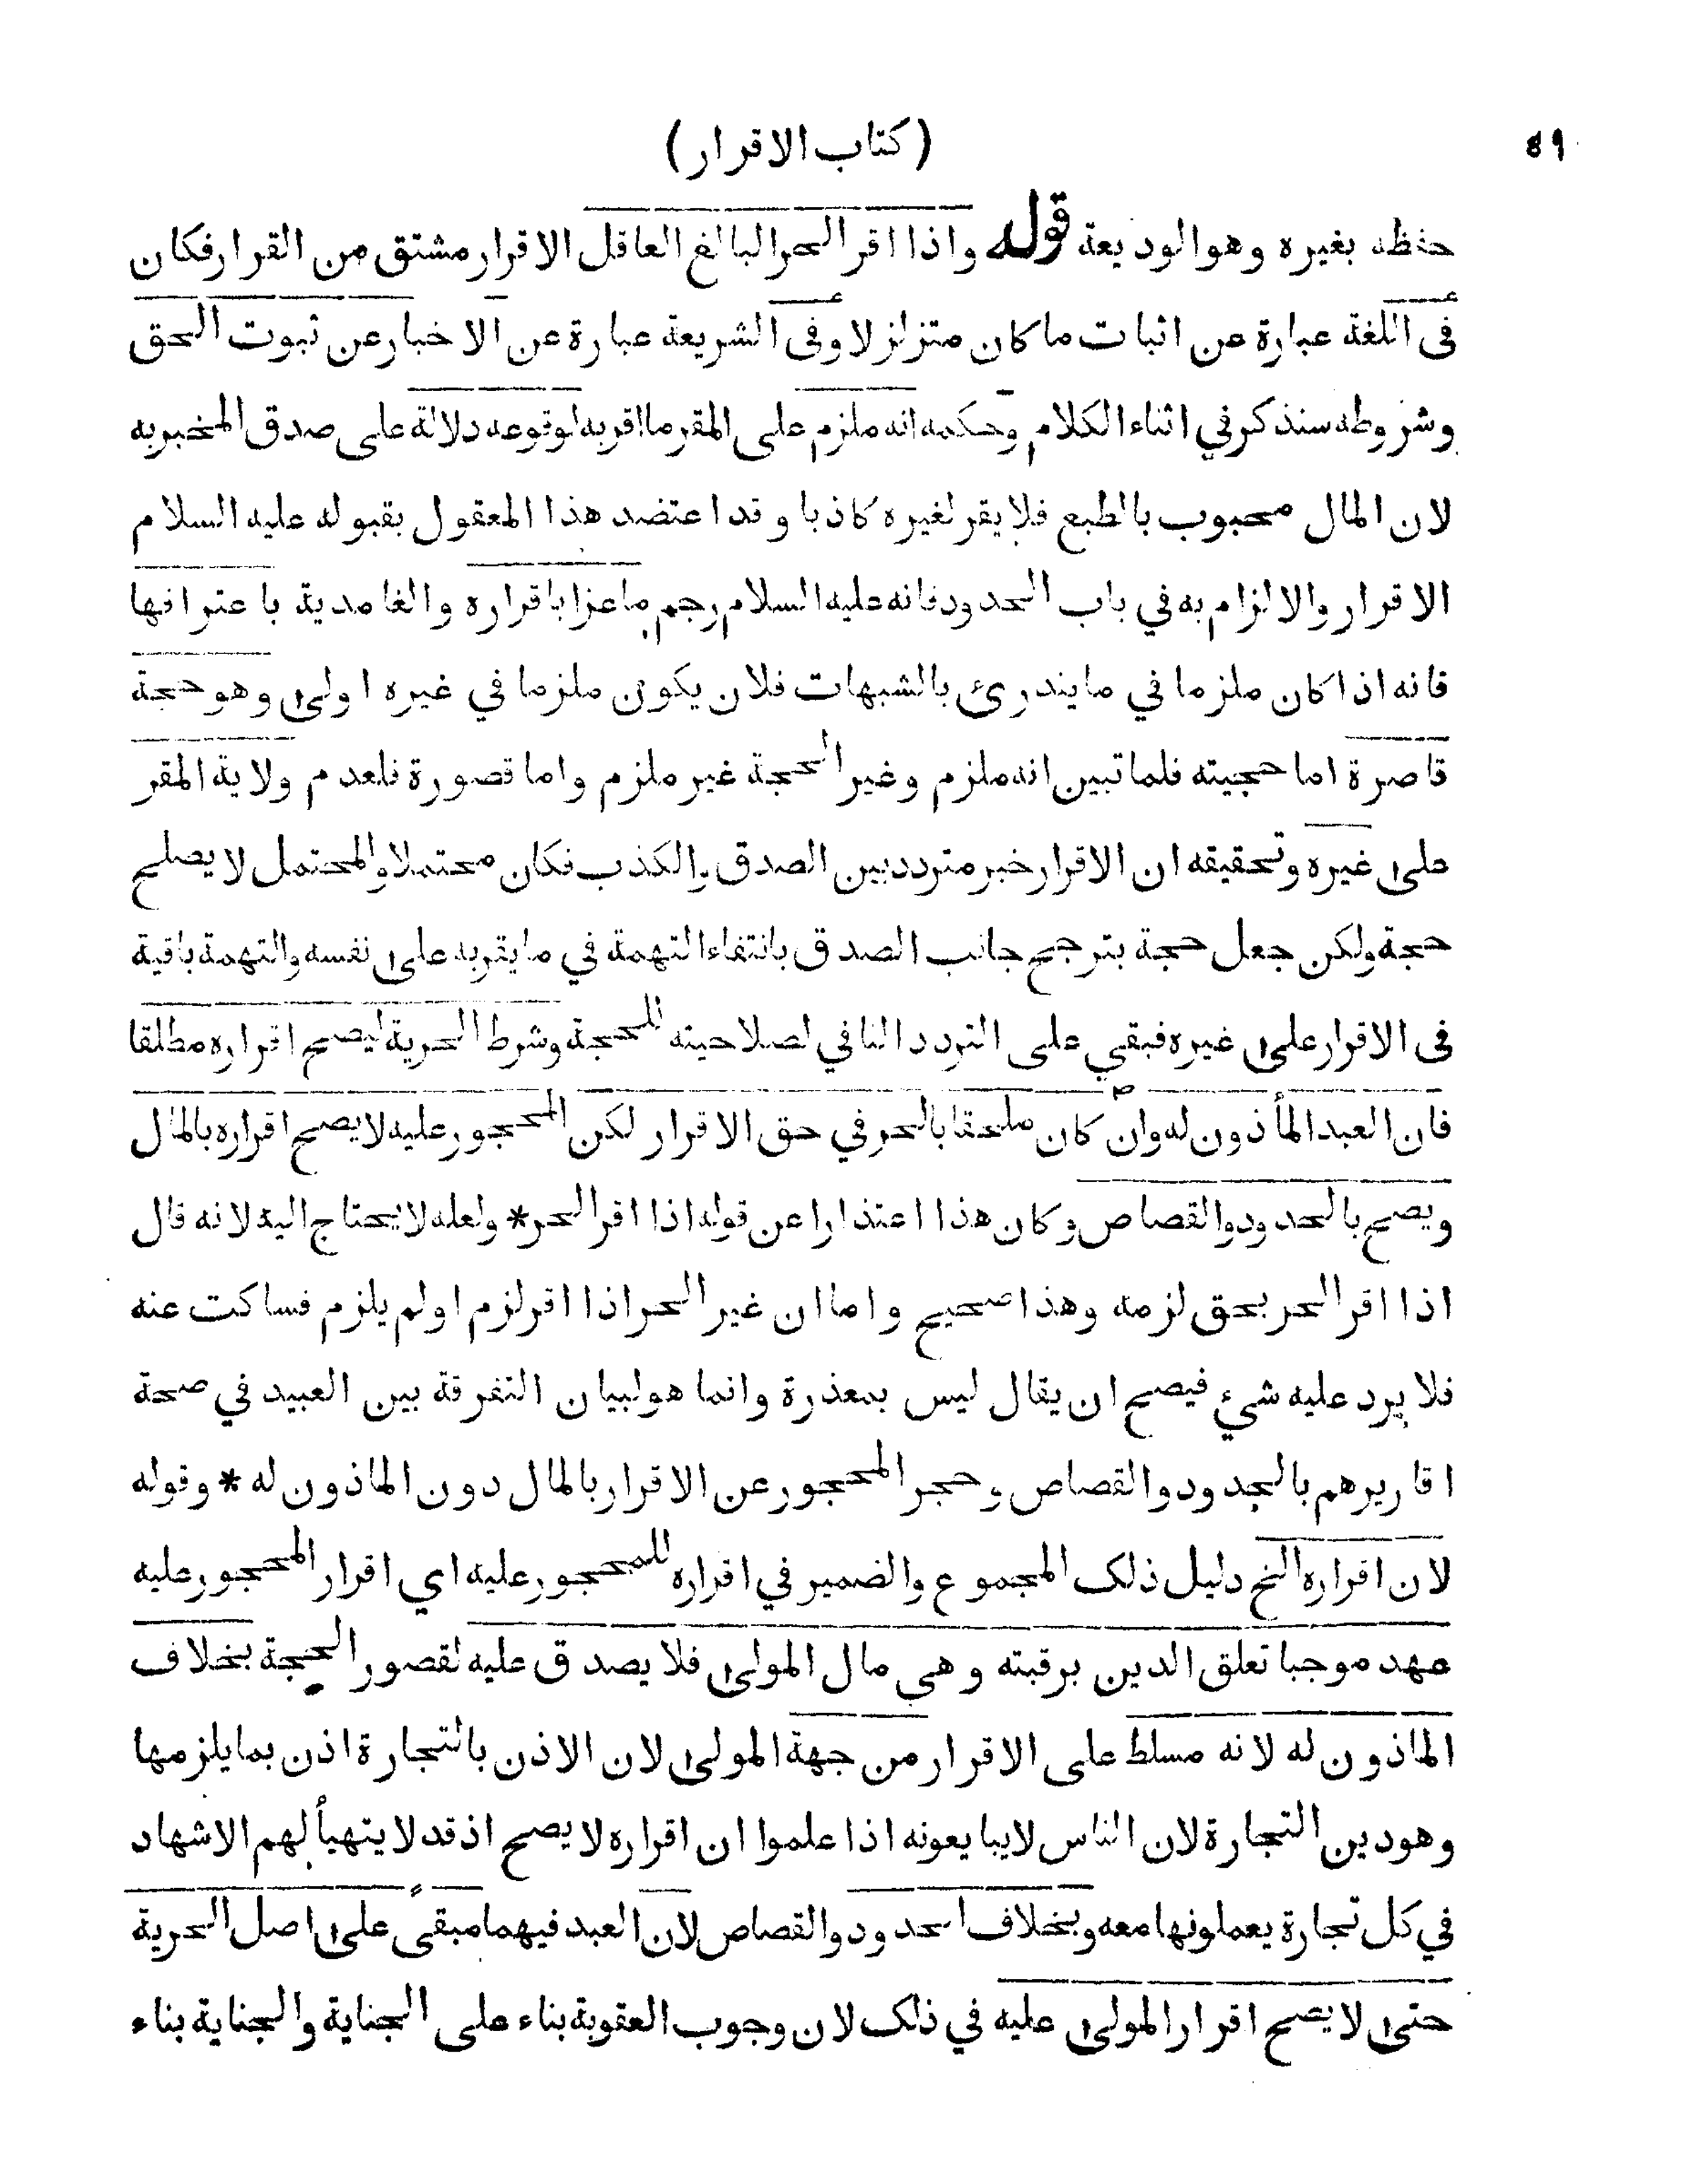 ( كتاب الاقرار )
حفظه بغيره وهو الوديعة قوله واذا اقر الحر البالغ العاقل الاقرار مشتق من القرار فكان
فى اللغة عبارة عن اثبات ما كان متزلزلا وفى الشريعة عبارة عن الاخبار عن ثبوت الحق
وشروطه سنذكر في اثناء الكلام وحكمه انه ملزم على المقر ما اقر به لوقوعه دلالة على صدق المخبر به
لان المال محبوب بالطبع فلا يقر لغيره كاذبا وقد اعتضد هذا المعقول بقبوله عليه السلام
الاقرار والالزام به في باب الحدود فانه عليه السلام رجم ماعزا باقراره والغامدية باعترافها
فانه اذا كان ملزما في ما يندرئ بالشبهات فلان يكون ملزما في غيره اولى وهو حجة
قاصرة اما حجيته فلما تبين انه ملزم وغير الحجة غير ملزم واما قصورة فلعدم ولاية المقر
على غيره وتحقيقه ان الاقرار خبر متردد بين الصدق والكذب فكان محتملا والمحتمل لا يصلح
حجة ولكن جعل حجة بترجح جانب الصدق بانتفاء التهمة في ما يقر به على نفسه والتهمة باقية
فى الاقرار على غيره فبقي على التردد النافي لصلاحيته للحجة وشرط الحرية ليصح اقراره مطلقا
فان العبد المأذون له وان كان ملحقا بالحر في حق الاقرار لكن المحجور عليه لا يصح اقراره بالمال
ويصح بالحدود والقصاص وكان هذا اعتذارا عن قوله اذا اقر الحر * ولعله لا يحتاج اليه لانه قال
اذا اقر الحر بحق لزمه وهذا صحيح واما ان غير الحر اذا اقر لزم اولم يلزم فساكت عنه
فلا يرد عليه شيء فيصح ان يقال ليس بمعذرة وانما هو لبيان التفرقة بين العبيد في صحة
اقاريرهم بالحدود والقصاص وحجر المحجور عن الاقرار بالمال دون الماذون له * وقوله
لان اقراره الخ دليل ذلك المجموع والضمير في اقراره للمحجور عليه اي اقرار المحجور عليه
عهد موجبا تعلق الدين برقبته وهى مال المولى فلا يصدق عليه لقصور الحجة بخلاف
الماذون له لانه مسلط على الاقرار من جهة المولى لان الاذن بالتجارة اذن بما يلزمها
وهو دين التجارة لان الناس لايبايعونه اذا علموا ان اقراره لا يصح اذ قد لا يتهيأ لهم الاشهاد
في كل تجارة يعملونها معه وبخلاف الحدود والقصاص لان العبد فيهما مبقى على اصل الحرية
حتى لا يصح اقرار المولى عليه في ذلك لان وجوب العقوبة بناء على الجناية والجناية بناء